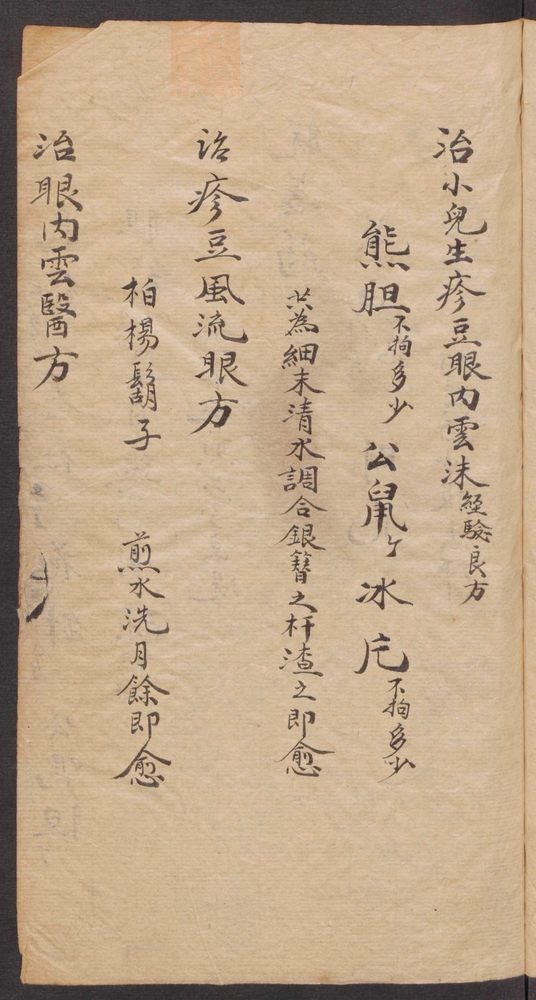 治小兒生疹豆眼內雲沫經驗良方
熊胆不拘多少 公鼠ケ 冰片不拘多少
共為細末清水調合銀簪之杆渣之即愈
治疹豆風流眼方
柏楊鬍子 煎水洗月餘即愈
治眼內雲醫方